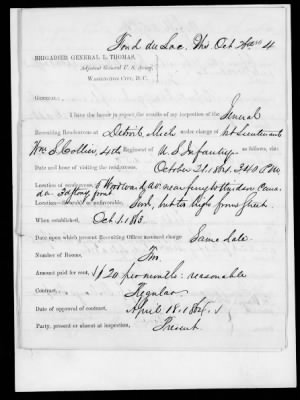 Fond du Lac, Wis. Oct 24th 4
BRIGADIER GENERAL L. THOMAS,
Adjutant General U. S. Army,
WASHINGTON CITY, D. C.
GENERAL:
I have the honor to report the results of my inspection of the General
Recruiting Rendezvous at Detroit, Mich under charge of 1st Lieutenant
Wm. S. Collier, 4th Regiment of U. S. Infantry, as follows, viz:
Date and hour of visiting the rendezvous. October 21. 1864. 3.40 P.M.
Location of rendezvous. Woodward av. near ferry to Windsor, Cana
da.
Location—favorable or unfavorable. Good, but too high from street.
When established. Oct. 1. 1863.
Date upon which present Recruiting Officer assumed charge. Same date
Number of Rooms,
Amount paid for rent, $20 per month: reasonable
Contract, Regular
Date of approval of contract, April 18. 1864.
Party, present or absent at inspection, Present.